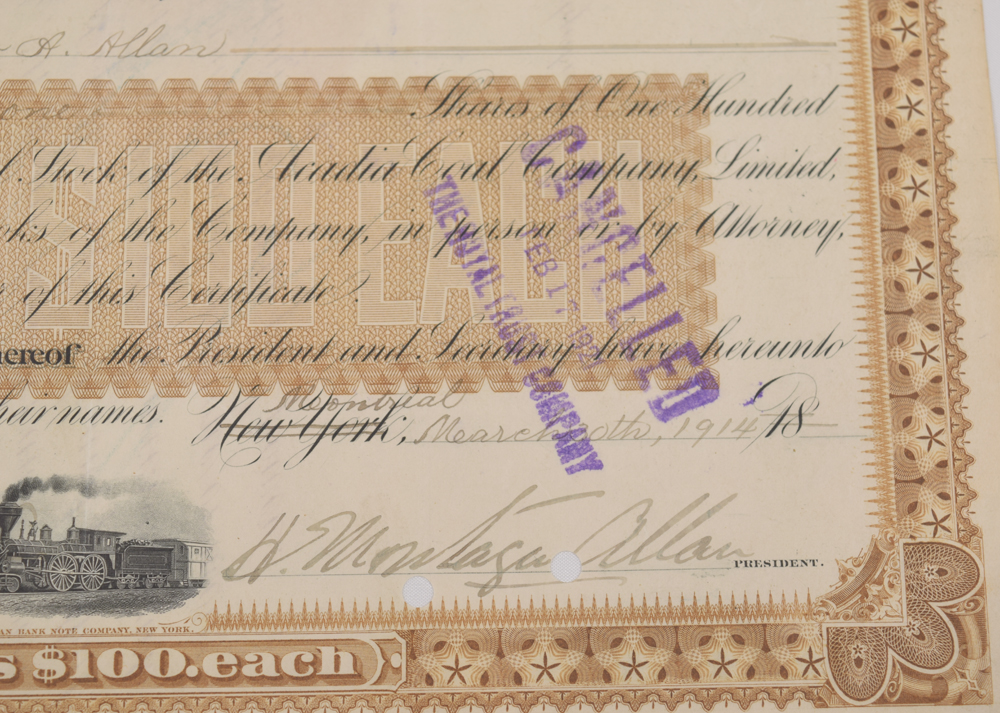 A. Allan
one Shares of One Hundred
Stock of the Acadia Coal Company, Limited,
of the Company, in person or by Attorney,
of this Certificate.
hereof the President and Secretary have hereunto
their names. New York, Montreal March 10th, 1914 18
$100 EACH
CANCELLED
FEB 1
THE ROYAL TRUST COMPANY
H. Montagu Allan
PRESIDENT.
AN BANK NOTE COMPANY, NEW YORK.
s $100. each